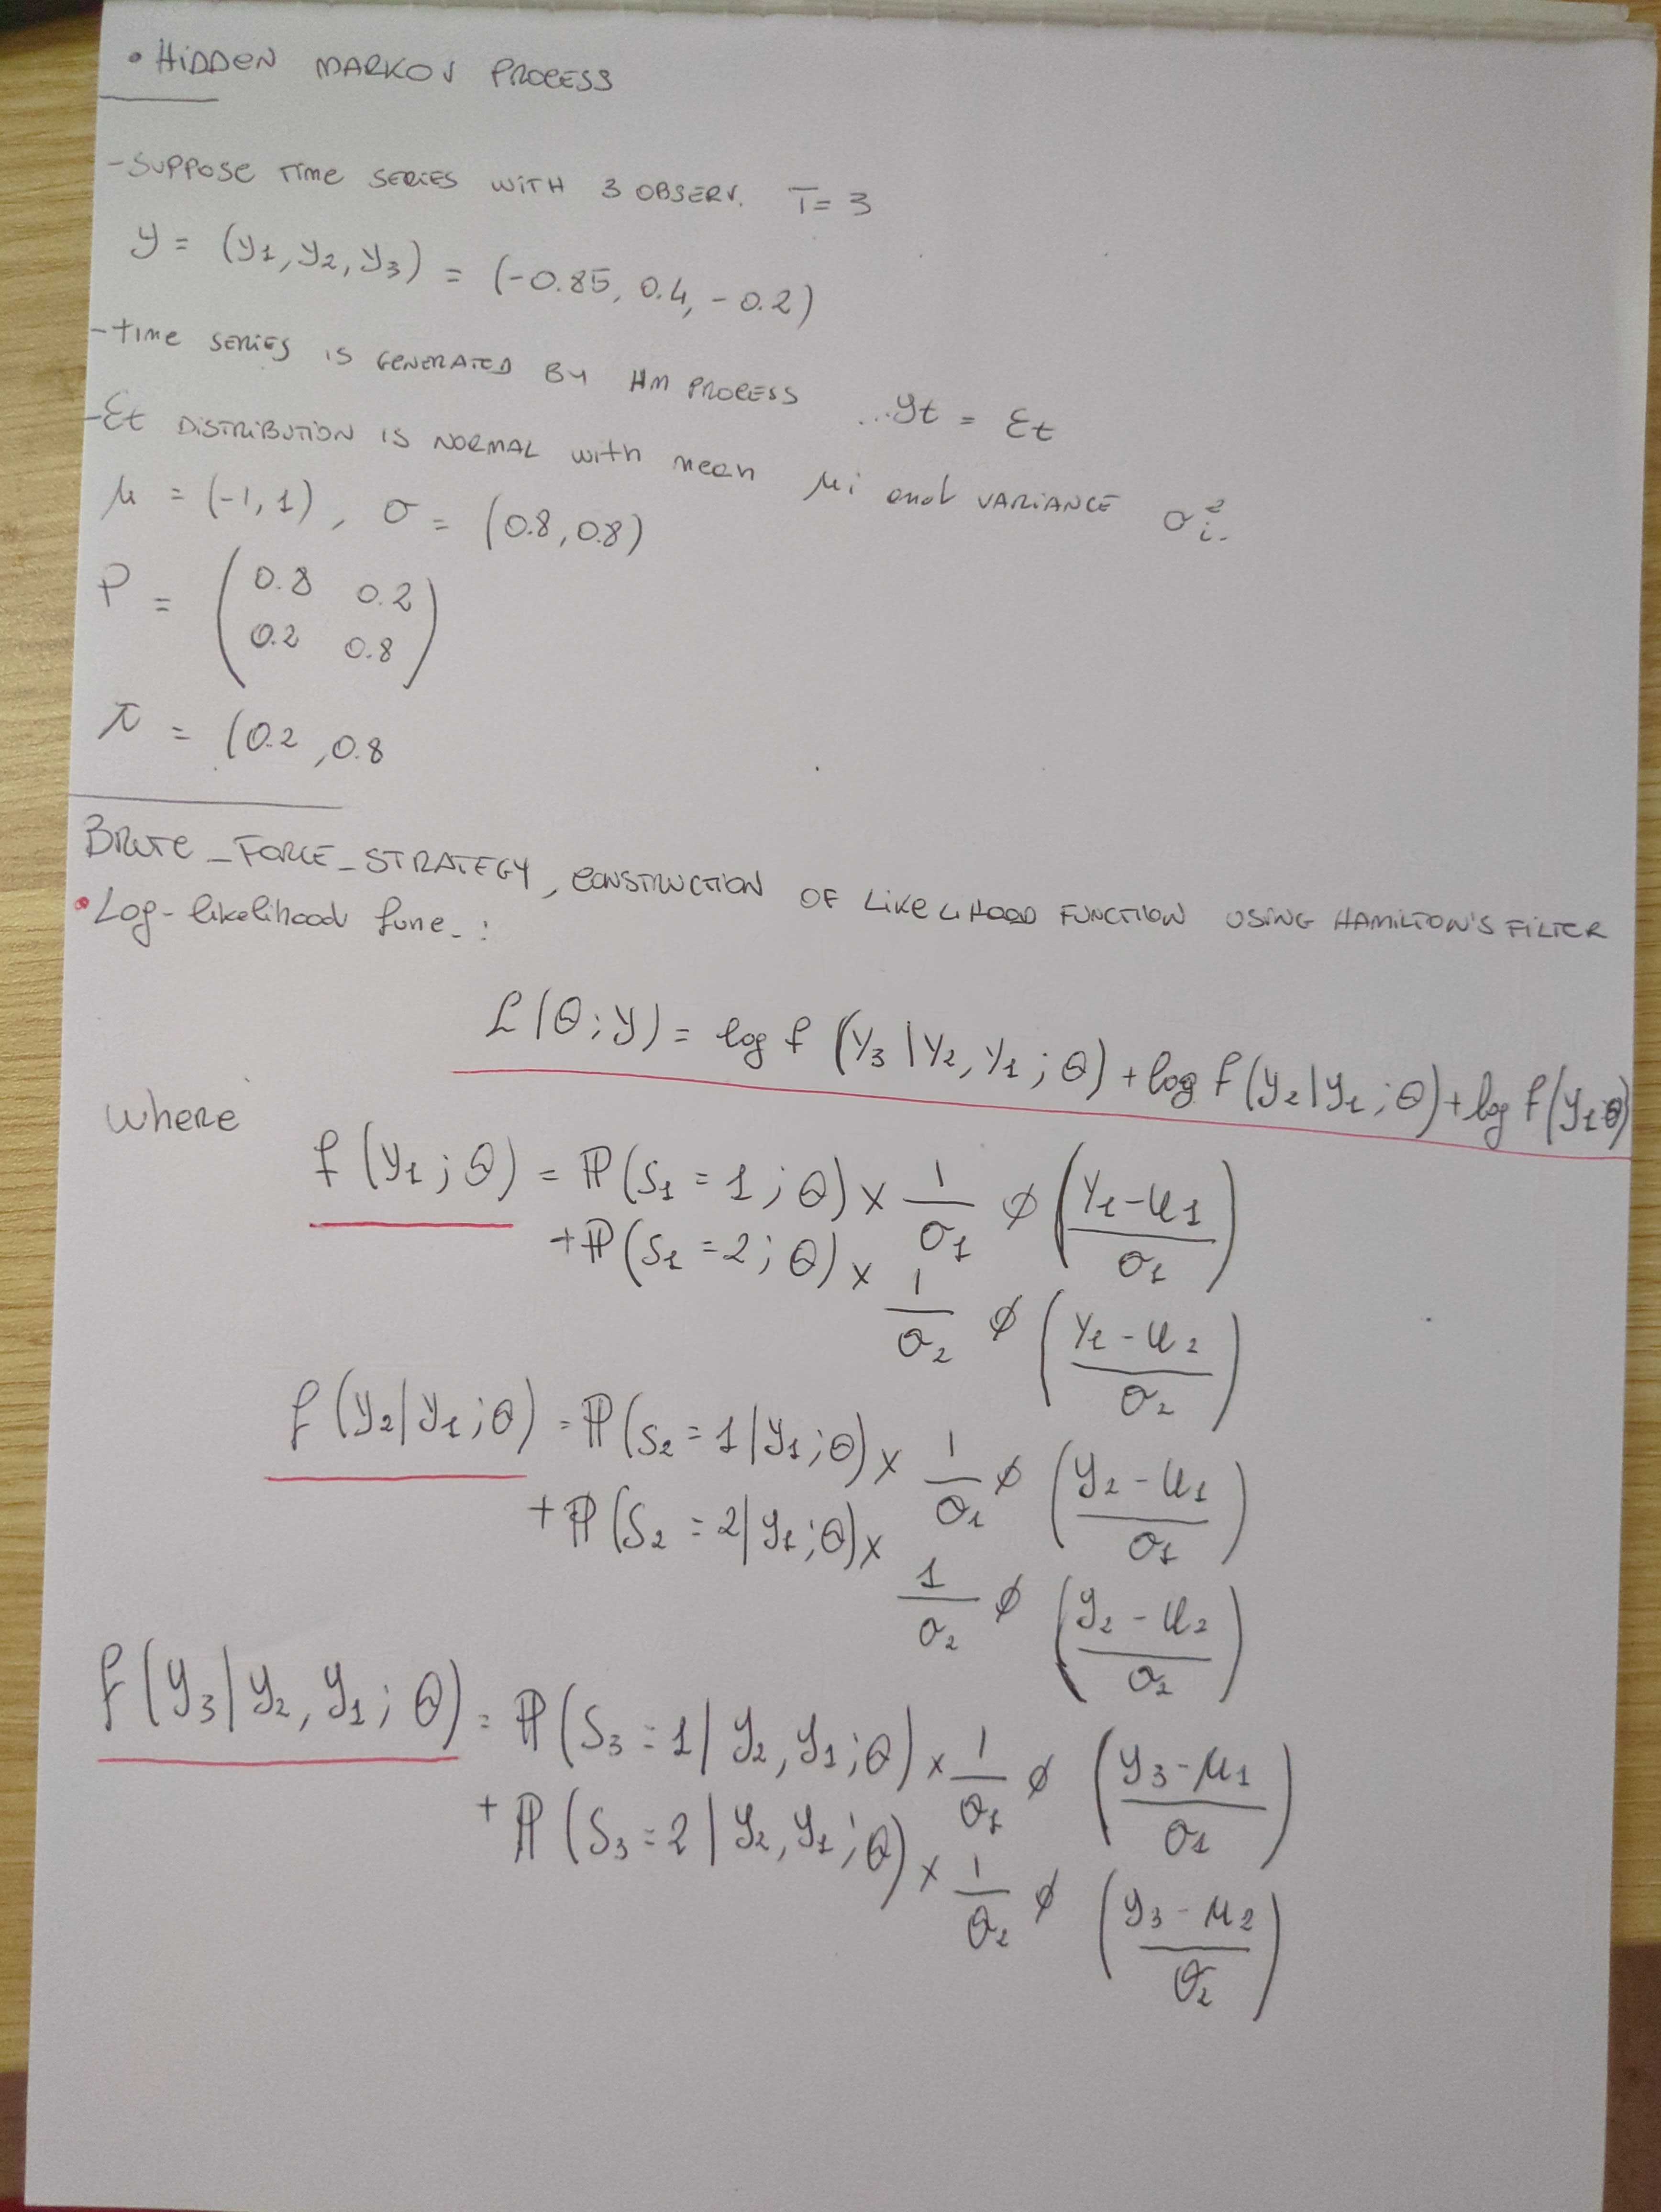 • HiDDEN MARKOV PROCESS
- SUPPOSE TIME SERIES WITH 3 OBSERV. T = 3
y = (y1, y2, y3) = (-0.85, 0.4, -0.2)
- TIME SERIES IS GENERATED BY HM PROCESS ...yt = εt
- εt DISTRIBUTION IS NORMAL with mean μi and VARIANCE σi².
μ = (-1, 1), σ = (0.8, 0.8)
P = (0.8 0.2
0.2 0.8)
π = (0.2, 0.8
BRUTE_FORCE_STRATEGY, CONSTRUCTION OF LIKELIHOOD FUNCTION USING HAMILTON'S FILTER
• Log-likelihood func. :
L(θ; y) = log f (y3 | y2, y1; θ) + log f (y2 | y1; θ) + log f (y1 θ)
where
f (y1; θ) = ℙ(S1 = 1; θ) × 1/σ1 φ ((y1 - μ1)/σ1)
+ ℙ(S1 = 2; θ) × 1/σ2 φ ((y1 - μ2)/σ2)
f (y2 | y1; θ) = ℙ(S2 = 1 | y1; θ) × 1/σ1 φ ((y2 - μ1)/σ1)
+ ℙ(S2 = 2 | y1; θ) × 1/σ2 φ ((y2 - μ2)/σ2)
f (y3 | y2, y1; θ) = ℙ(S3 = 1 | y2, y1; θ) × 1/σ1 φ ((y3 - μ1)/σ1)
+ ℙ(S3 = 2 | y2, y1; θ) × 1/σ2 φ ((y3 - μ2)/σ2)